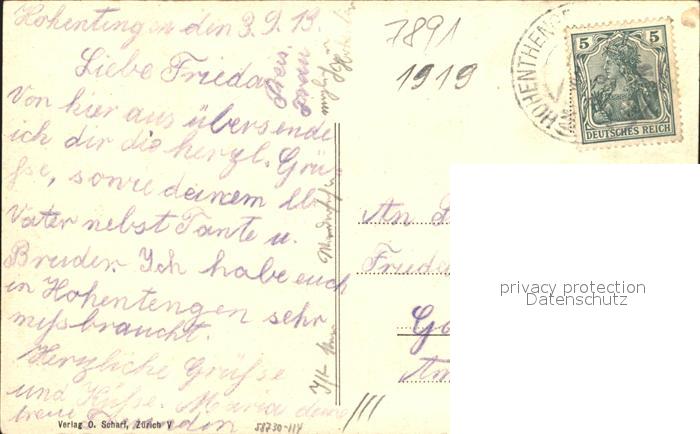 Hohentengen den 3.9.13.
Liebe Frieda
Von hier aus übersende
ich dir die herzl. Grü-
ße, sowie deinem lb
Vater nebst Tante u.
Bruder. Ich habe euch
in Hohentengen sehr
mißbraucht.
Herzliche Grüße
und Küsse. Maria deine
treue
Verlag O. Scharf, Zürich V
58730-114
7891
1919
HOHENTHENGEN
5 5
DEUTSCHES REICH
An
Frieda
privacy protection
Datenschutz
Am